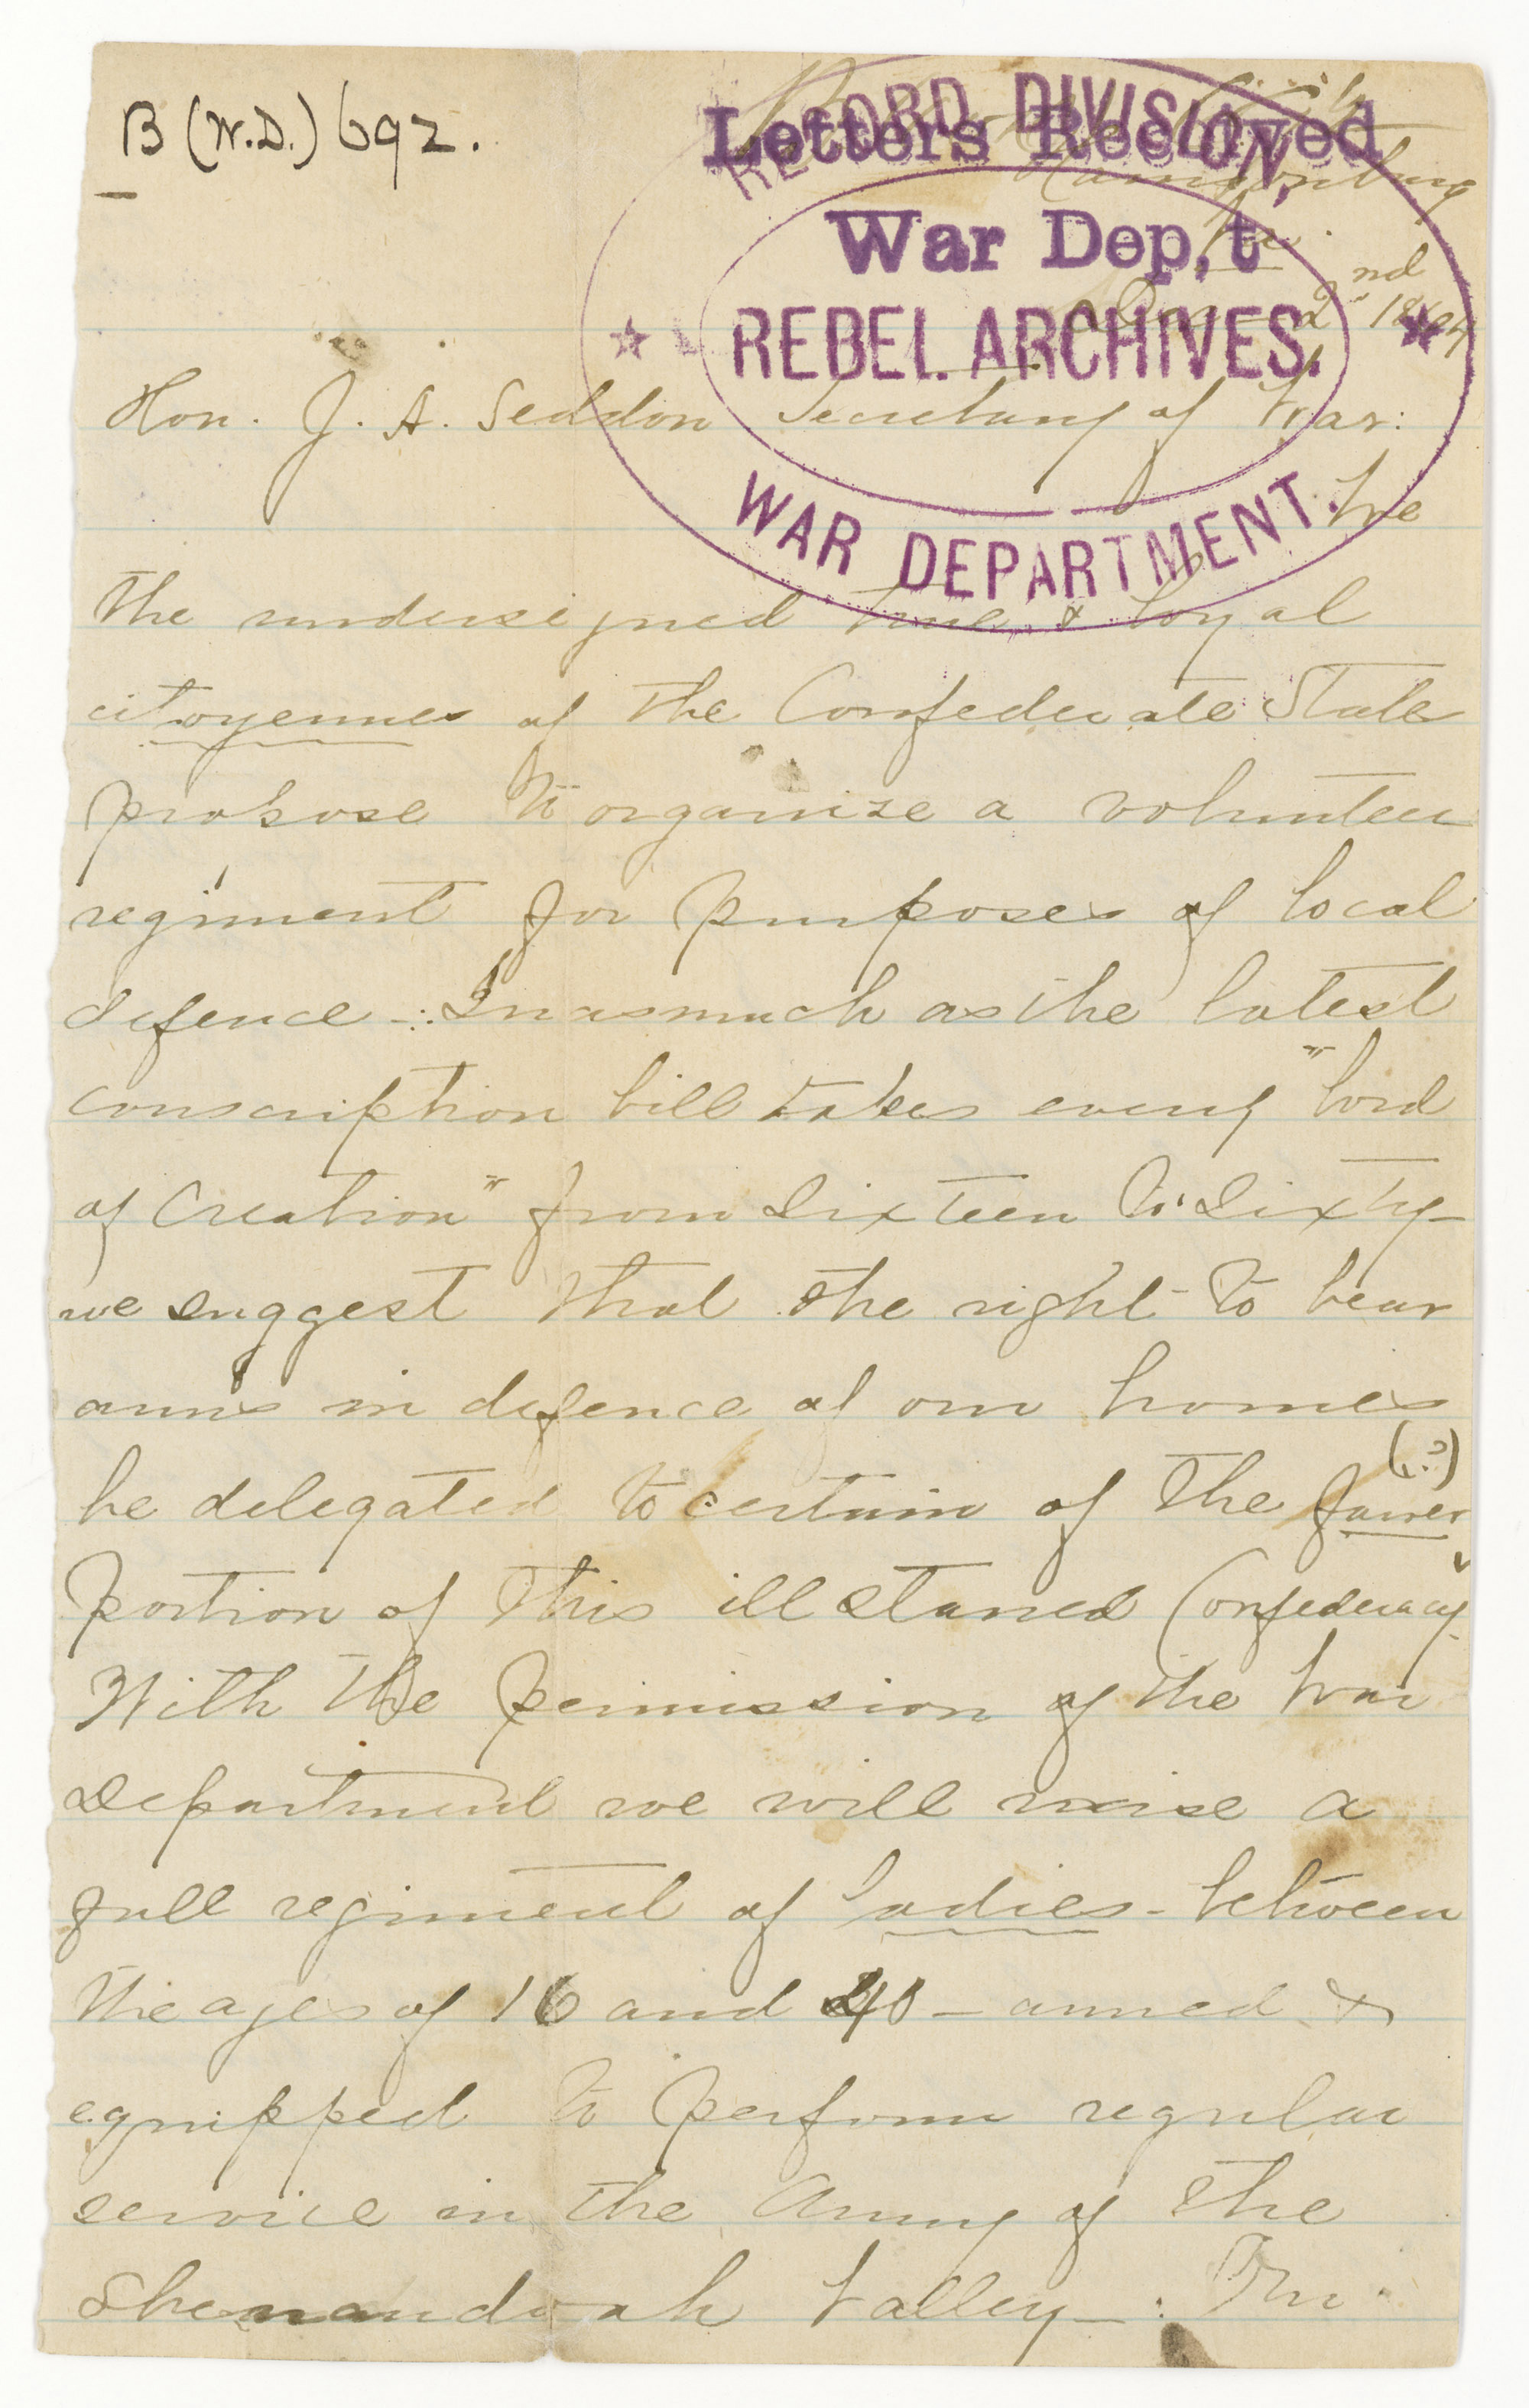 B (W.D.) 692.
RECORD DIVISION,
Letters Received
Harrisonburg
Va.
War Dep,t
Dec 2nd 1864
REBEL ARCHIVES.
Hon. J. A. Seddon Secretary of War:
WAR DEPARTMENT.
We
the undersigned true & loyal
citoyennes of the Confederate States
propose to organize a volunteer
regiment for purposes of local
defence -: Inasmuch as the latest
conscription bill takes every "lord
of Creation" from Sixteen to Sixty-
we suggest that the right to bear
arms in defence of our homes
be delegated to certain of the fairer (?)
portion of this ill starred Confederacy.
With the permission of the War
Department we will raise a
full regiment of Ladies - between
the ages of 16 and 40 - armed &
equipped to perform regular
service in the Army of the
Shenandoah Valley -: Our